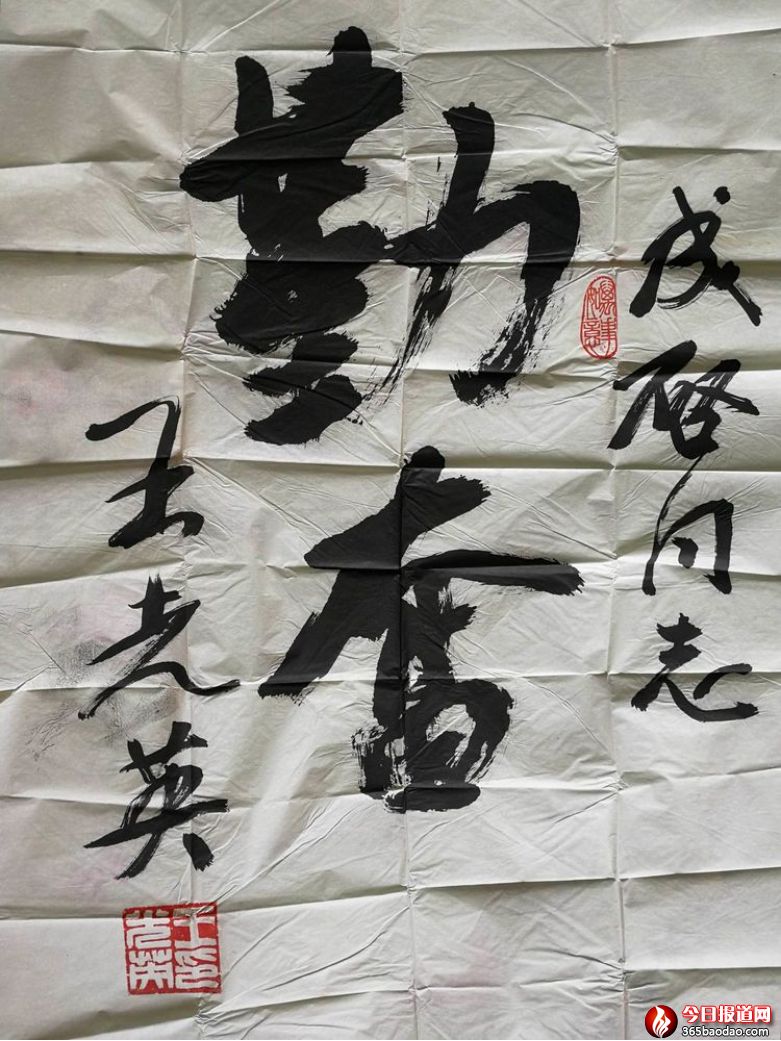 成啓同志
勤奋
王光英
王光英印
今日报道网
365baodao.com